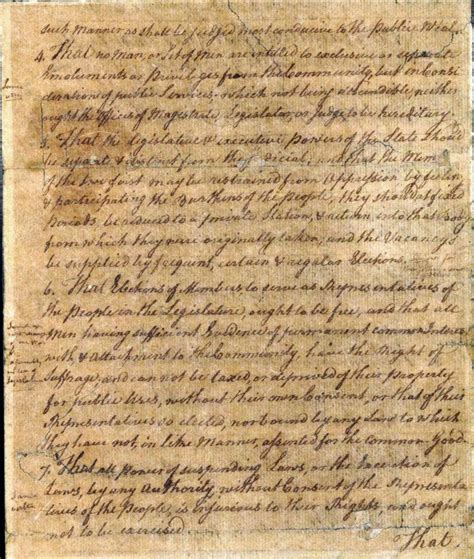 such Manner as shall be judged most conducive to the Public Weal.
4. That no Man, or Set of Men are intitled to exclusive or separate
Emoluments or Privileges from the Community, but in Consi
deration of public Services; which not being descendible neither
ought the Offices of Magistrate, Legislator, or Judge to be hereditary
5. That the legislative & executive Powers of the State should
be separate & distinct from the Judicial; and that the Mem
of the two first may be restrained from Oppression by feelin
& participating the Burthens of the People, they should, at fixed
Periods be reduced to a private Station, & return into that Body
from which they were originally taken, and the Vacancys
be supplied by frequent, certain & regular Elections.
6. That Elections of Members to serve as Representatives of
the People in the Legislature, ought to be free, and that all
Men having sufficient Evidence of permanent common Interest
with & Attachment to the Community, have the Right of
Suffrage, and cannot be taxed, or deprived of their Property
for public Uses, without their own Consent, or that of their
Representatives so elected, nor bound by any Law to which
they have not, in like Manner, assented for the common Good
7. That all Power of suspending Laws, or the Execution of
Laws, by any Authority, without Consent of the Representa
tives of the People, is injurious to their Rights, and ought
not to be exercised.
That